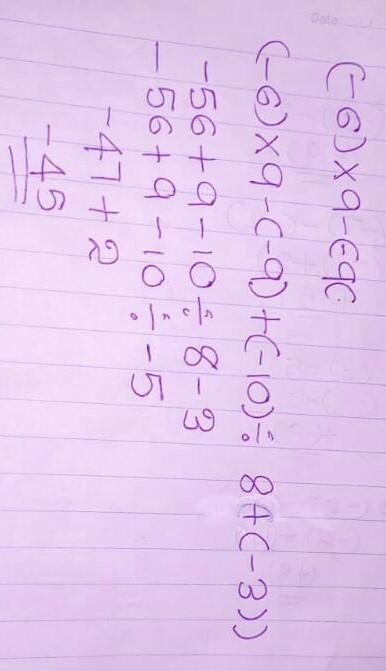 Date:
(-6)×9-(-9(
(-6)×9-(-9)+(-10)÷ 8+(-3))
-56+9-10÷8-3
-56+9-10÷-5
-47+2
-45